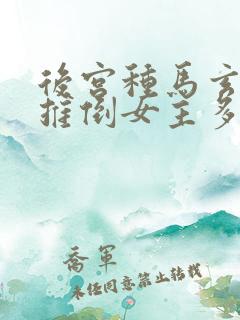 後宮種馬玄
推倒女主多
喬軍
未經同意禁止轉載